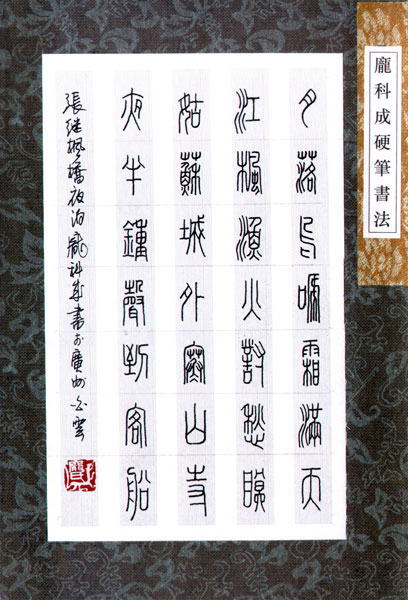 龐科成硬筆書法
月落烏啼霜滿天
江楓漁火對愁眠
姑蘇城外寒山寺
夜半鐘聲到客船
張继楓橋夜泊龐科成書於廣州白雲